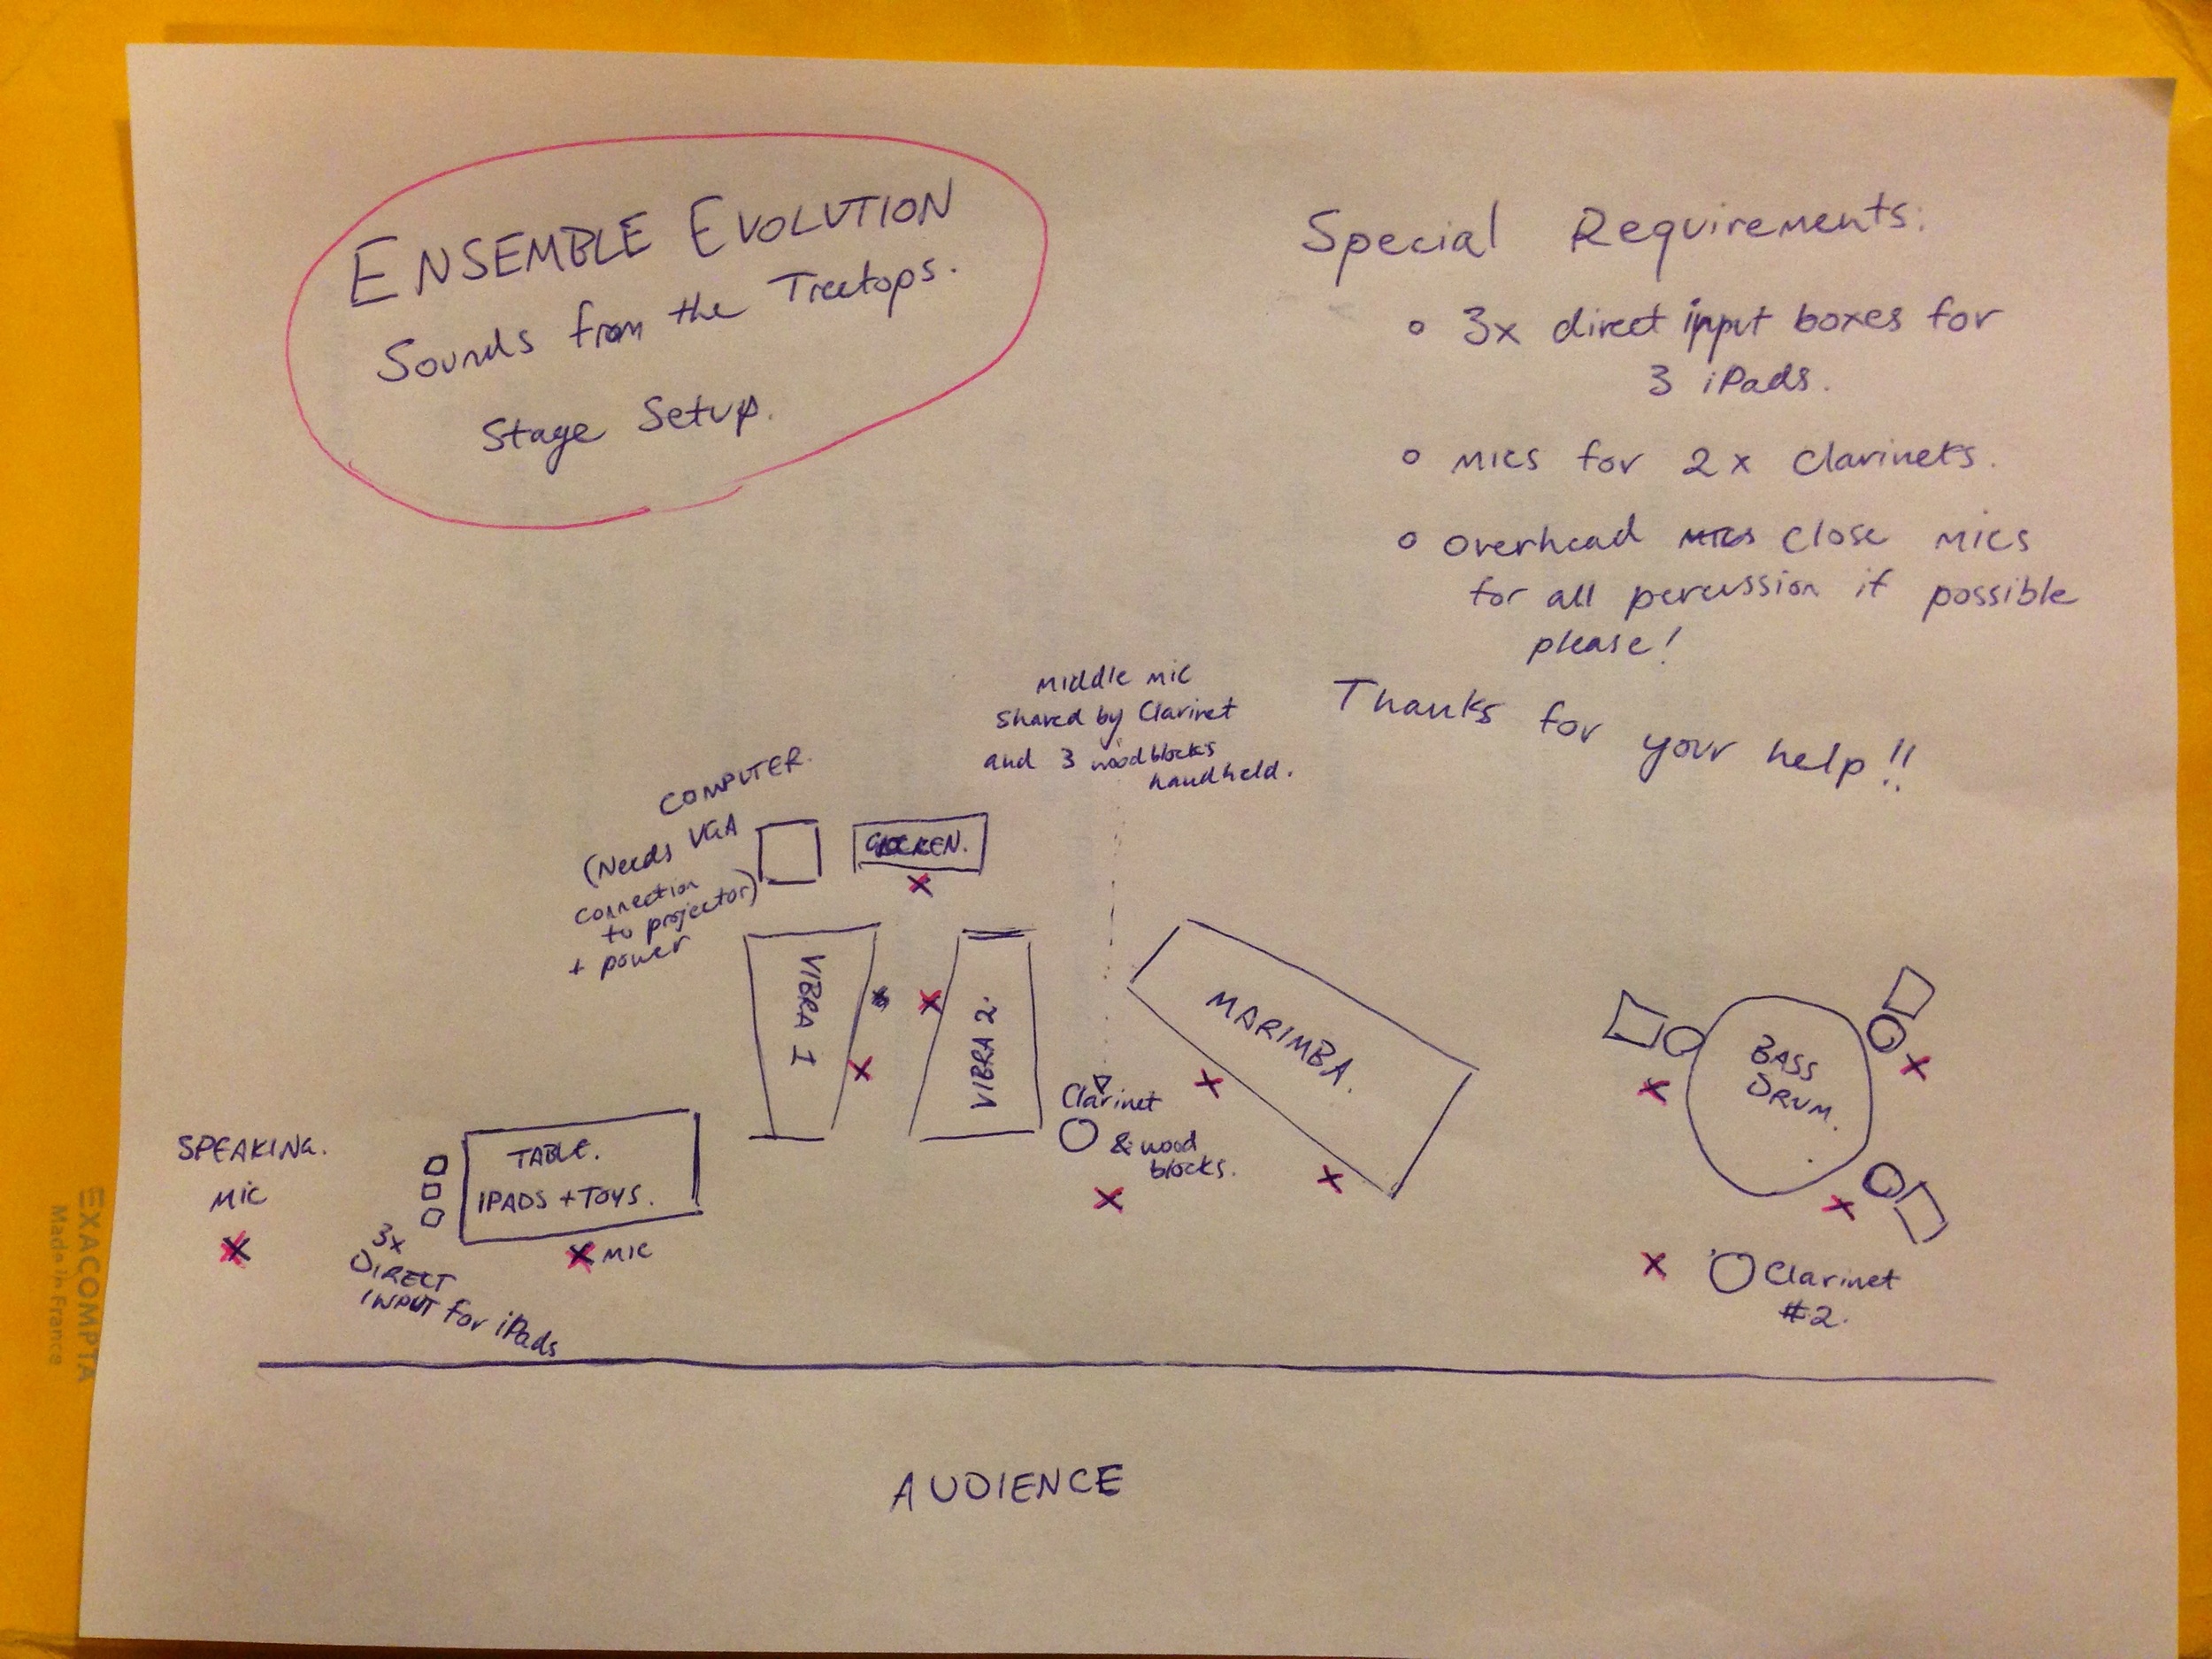 ENSEMBLE EVOLUTION
Sounds from the Treetops.
Stage Setup.
Special Requirements:
3x direct input boxes for
3 iPads.
MICS for 2x Clarinets.
Overhead MICS close MICS
for all percussion if possible
please!
Thanks for
your help!!
MIDDLE MIC
Shared by Clarinet
and 3 woodblocks
handheld.
COMPUTER.
(Needs VGA
connection
to projector)
+ power
GLOCKEN.
VIBRA 1
VIBRA 2.
MARIMBA.
BASS
DRUM.
Clarinet
& wood
blocks.
SPEAKING.
MIC
TABLE.
IPADS + TOYS.
MIC
3x
DIRECT
INPUT for iPads
Clarinet
#2.
AUDIENCE
EXACOMPTA
Made in France